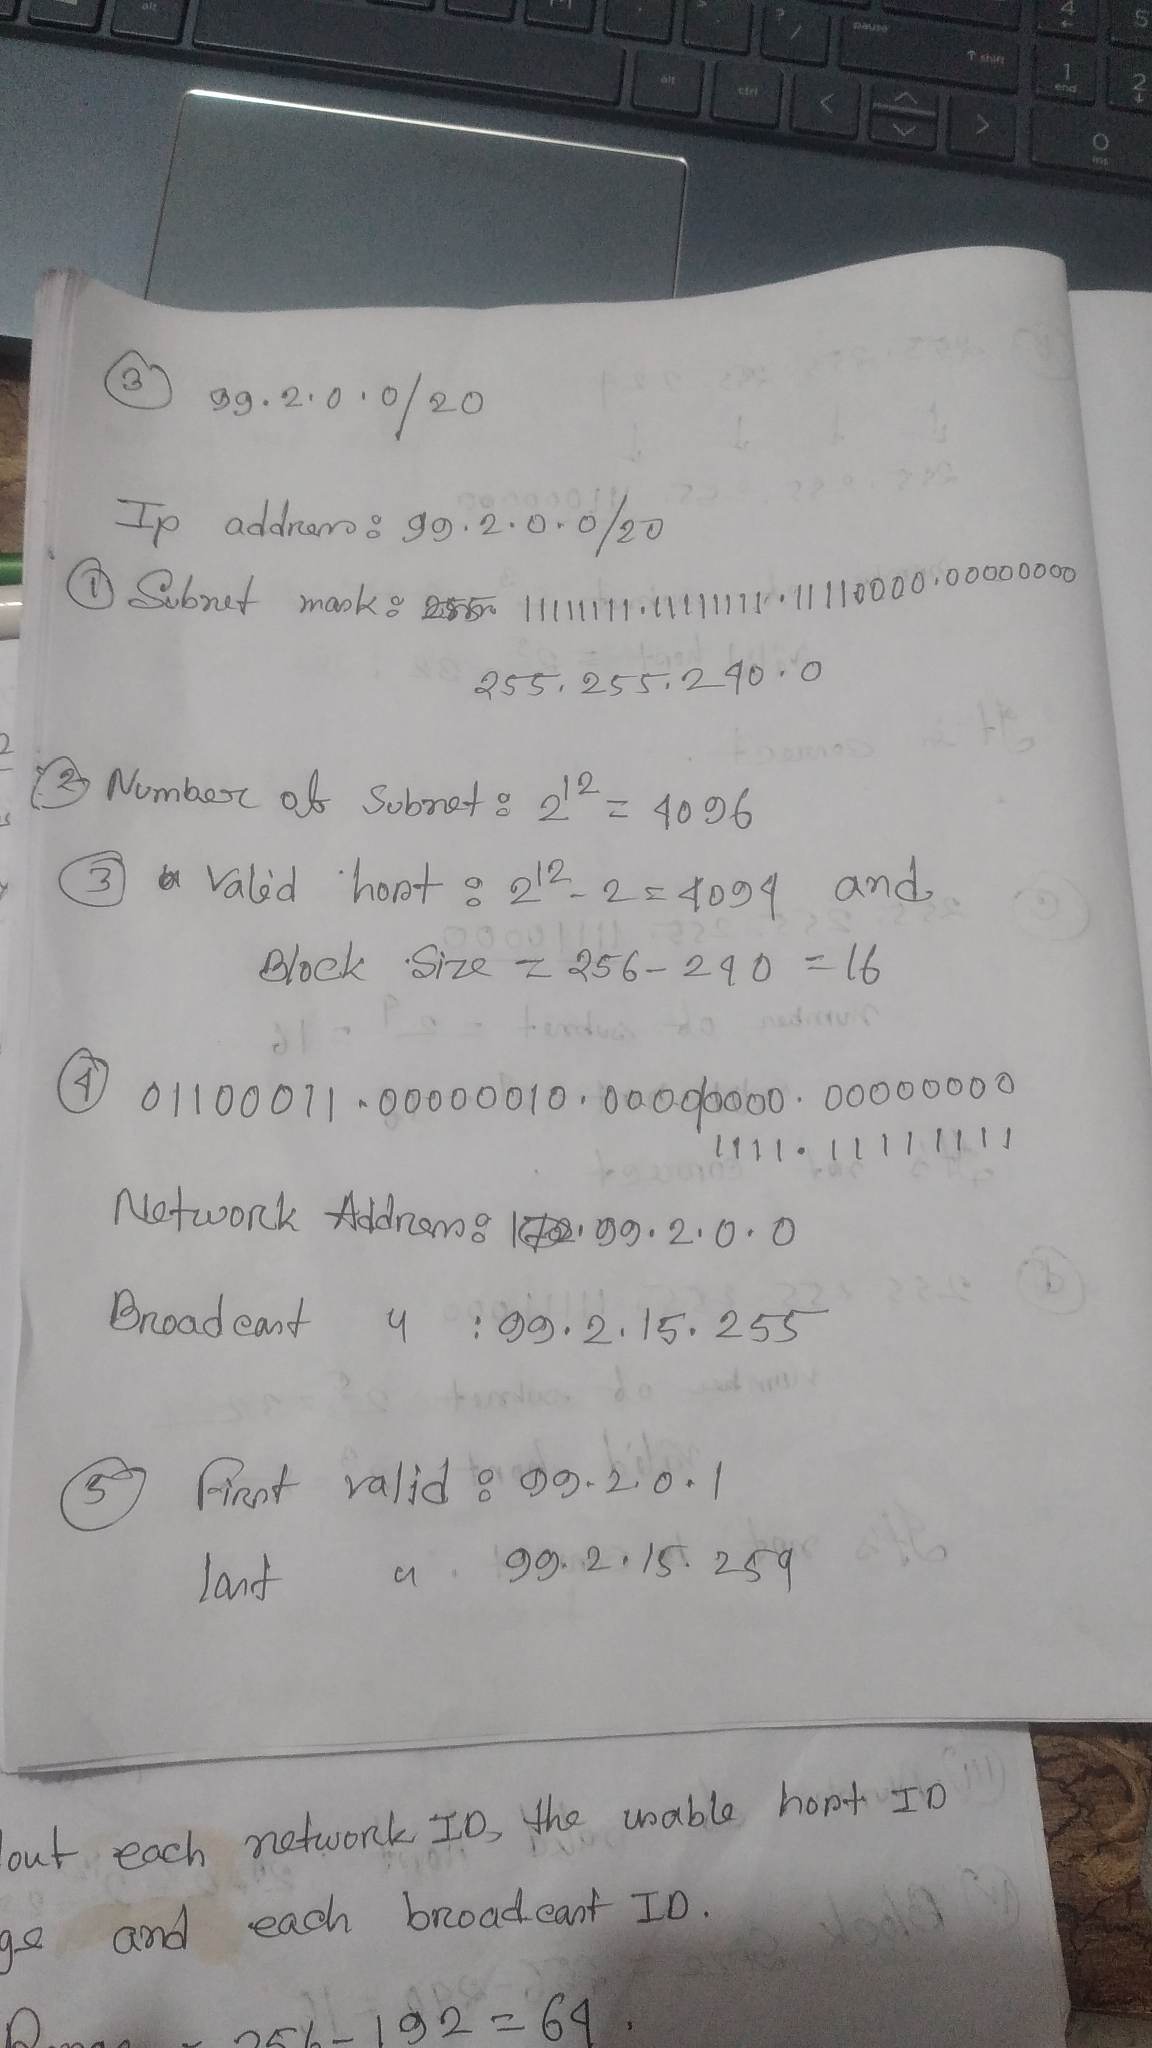 ③ 99.2.0.0/20
Ip address: 99.2.0.0/20
① Subnet mask: 11111111.11111111.11110000.00000000
255.255.240.0
② Number of Subnet: 2^12 = 4096
③ Valid host: 2^12 - 2 = 4094 and
Block Size = 256 - 240 = 16
④ 01100011.00000010.00000000.00000000
1111.11111111
Network Address: 99.2.0.0
Broadcast " : 99.2.15.255
⑤ First valid: 99.2.0.1
last " . 99.2.15.254
out each network ID, the usable host ID
and each broadcast ID.
256 - 192 = 64.